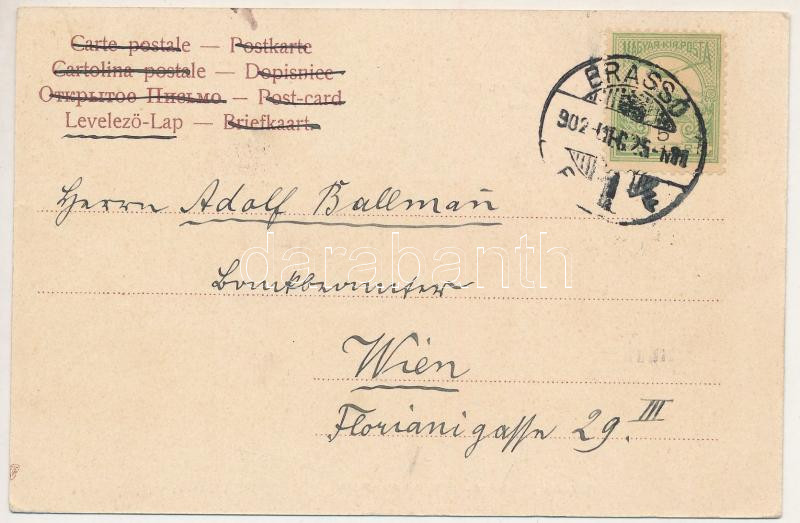 Carte postale — Postkarte
Cartolina postale — Dopisnice
Открытое Письмо — Post-card
Levelező-Lap — Briefkaart
MAGYAR·KIR·POSTA
BRASSÓ
902
Herrn Adolf Ballmañ
darabanth
Bankbeamter
Wien
Florianigasse 29. III